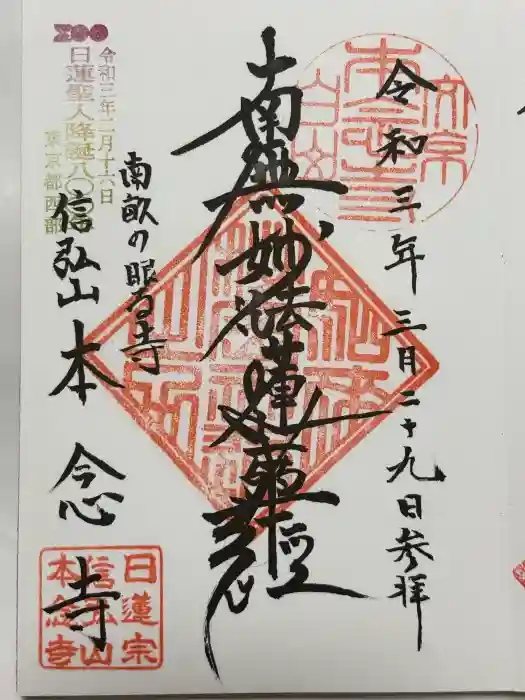 令和三年三月二十九日参拝
南無妙法蓮華経
南畝の眠る寺
信弘山本念寺
令和三年二月十六日
日蓮聖人降誕八〇〇
東京都西部
日蓮宗
信弘山
本念寺
文京
白山